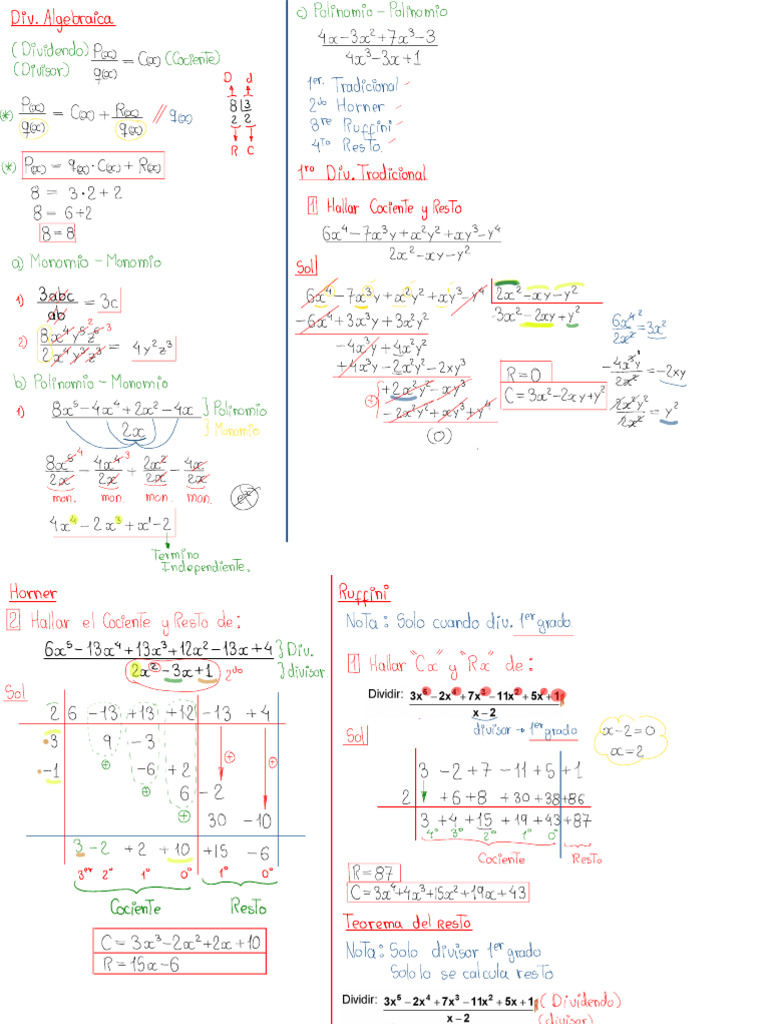 Div. Algebraica
(Dividendo) P(x) / q(x) = C(x) (Cociente)
(Divisor)
D d
8 3
2 2
R C
(*) P(x) / q(x) = C(x) + R(x) / q(x) // q(x)
(*) P(x) = q(x) · C(x) + R(x)
8 = 3·2+2
8 = 6+2
8 = 8
a) Monomio - Monomio
1) 3abc / ab = 3c
2) 8x⁴y⁵z⁶ / 2x⁴y³z³ = 4y²z³
b) Polinomio - Monomio
1) 8x⁵ - 4x⁴ + 2x² - 4x } Polinomio
2x } Monomio
8x⁵/2x - 4x⁴/2x + 2x²/2x - 4x/2x
mon. mon. mon. mon.
4x⁴ - 2x³ + x¹ - 2
Termino
Independiente.
c) Polinomio - Polinomio
4x - 3x² + 7x³ - 3
4x³ - 3x + 1
1er. Tradicional
2do Horner
3re Ruffini
4To Resto.
1ro Div. Tradicional
1 Hallar Cociente y Resto
6x⁴ - 7x³y + x²y² + xy³ - y⁴
2x² - xy - y²
Sol
6x⁴ - 7x³y + x²y² + xy³ - y⁴ 2x² - xy - y²
-6x⁴ + 3x³y + 3x²y² 3x² - 2xy + y²
-4x³y + 4x²y²
+4x³y - 2x²y² - 2xy³
+2x²y² - xy³
-2x²y² + xy³ + y⁴
(0)
R = 0
C = 3x² - 2xy + y²
6x⁴/2x² = 3x²
-4x³y/2x² = -2xy
2x²y²/2x² = y²
Horner
2 Hallar el Cociente y Resto de:
6x⁵ - 13x⁴ + 13x³ + 12x² - 13x + 4 } Div.
2x² - 3x + 1 2do } divisor
Sol
2 6 -13 +13 +12 -13 +4
3 9 -3
-1 -6 +2
6 -2
30 -10
3 -2 +2 +10 +15 -6
3er 2° 1° 0° 1° 0°
Cociente Resto
C = 3x³ - 2x² + 2x + 10
R = 15x - 6
Ruffini
Nota: Solo cuando div. 1er grado
1 Hallar "Cx" y "Rx" de:
Dividir: 3x⁵ - 2x⁴ + 7x³ - 11x² + 5x + 1
x - 2
divisor → 1er grado
x - 2 = 0
x = 2
Sol
3 -2 +7 -11 +5 +1
2 +6 +8 +30 +38 +86
3 +4 +15 +19 +43 +87
4° 3° 2° 1° 0°
Cociente Resto
R = 87
C = 3x⁴ + 4x³ + 15x² + 19x + 43
Teorema del Resto
Nota: Solo divisor 1er grado
Solo lo se calcula resto
Dividir: 3x⁵ - 2x⁴ + 7x³ - 11x² + 5x + 1 (Dividendo)
x - 2 (divisor)